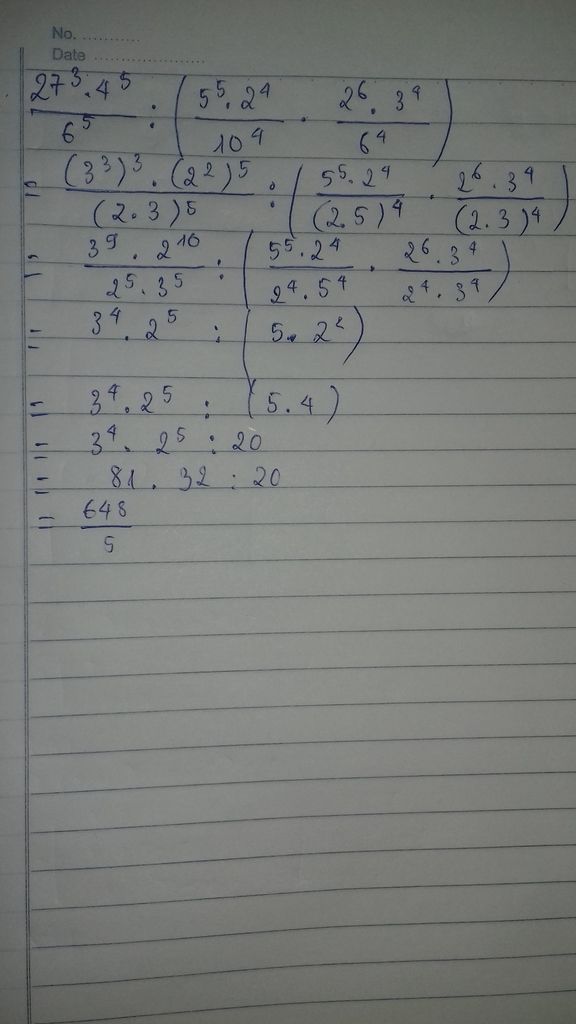 No. ...........
Date .....................
27³ . 4⁵ / 6⁵ : ( 5⁵ . 2⁴ / 10⁴ . 2⁶ . 3⁴ / 6⁴ )
= (3³)³ . (2²)⁵ / (2 . 3)⁵ : ( 5⁵ . 2⁴ / (2 . 5)⁴ . 2⁶ . 3⁴ / (2 . 3)⁴ )
= 3⁹ . 2¹⁰ / 2⁵ . 3⁵ : ( 5⁵ . 2⁴ / 2⁴ . 5⁴ . 2⁶ . 3⁴ / 2⁴ . 3⁴ )
= 3⁴ . 2⁵ : ( 5 . 2² )
= 3⁴ . 2⁵ : ( 5 . 4 )
= 3⁴ . 2⁵ : 20
= 81 . 32 : 20
= 648 / 5